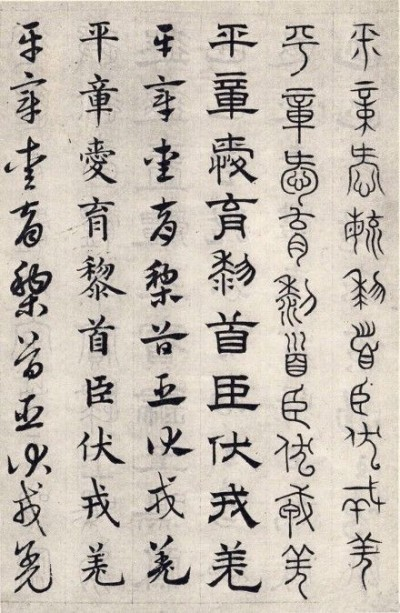 平章愛毓黎首臣伏戎羌
平章愛育黎首臣伏戎羌
平章愛育黎首臣伏戎羌
平章愛育黎首臣伏戎羌
平章愛育黎首臣伏戎羌
平章愛育黎首臣伏戎羌